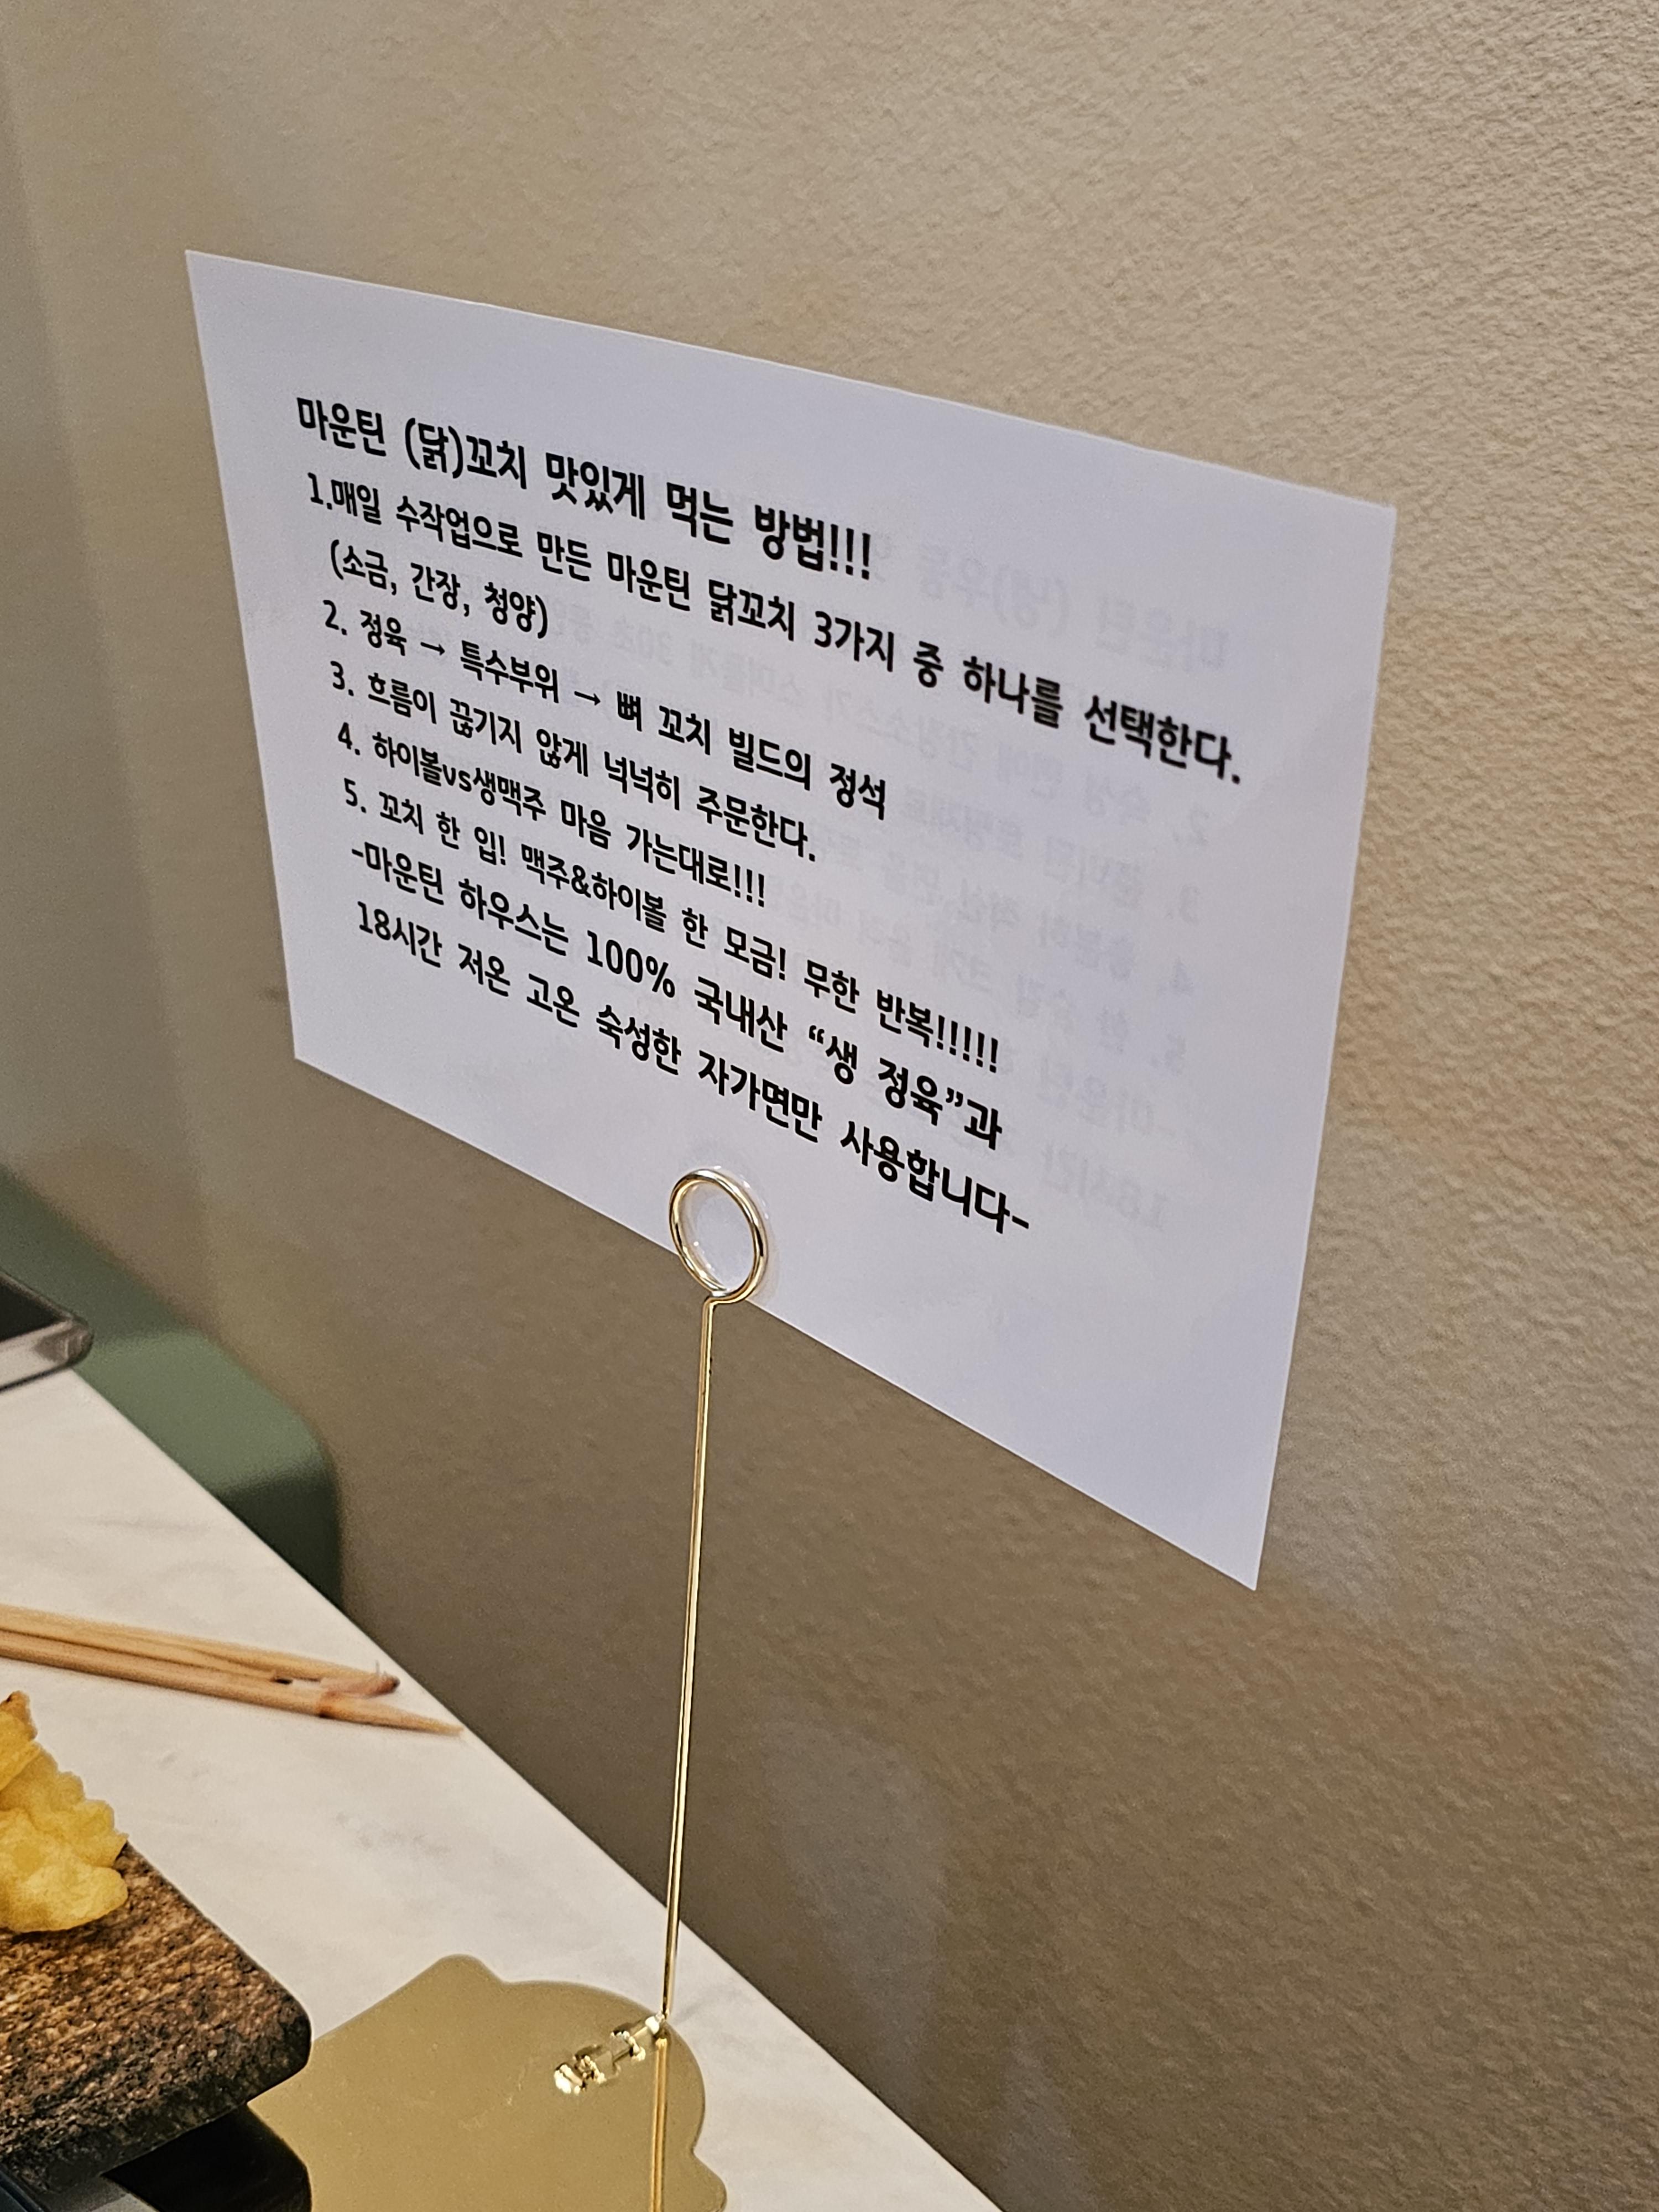 마운틴 (닭)꼬치 맛있게 먹는 방법!!!
1.매일 수작업으로 만든 마운틴 닭꼬치 3가지 중 하나를 선택한다.
(소금, 간장, 청양)
2. 정육 → 특수부위 → 뼈 꼬치 빌드의 정석
3. 흐름이 끊기지 않게 넉넉히 주문한다.
4. 하이볼vs생맥주 마음 가는대로!!!
5. 꼬치 한 입! 맥주&하이볼 한 모금! 무한 반복!!!!!
-마운틴 하우스는 100% 국내산 “생 정육”과
18시간 저온 고온 숙성한 자가면만 사용합니다-